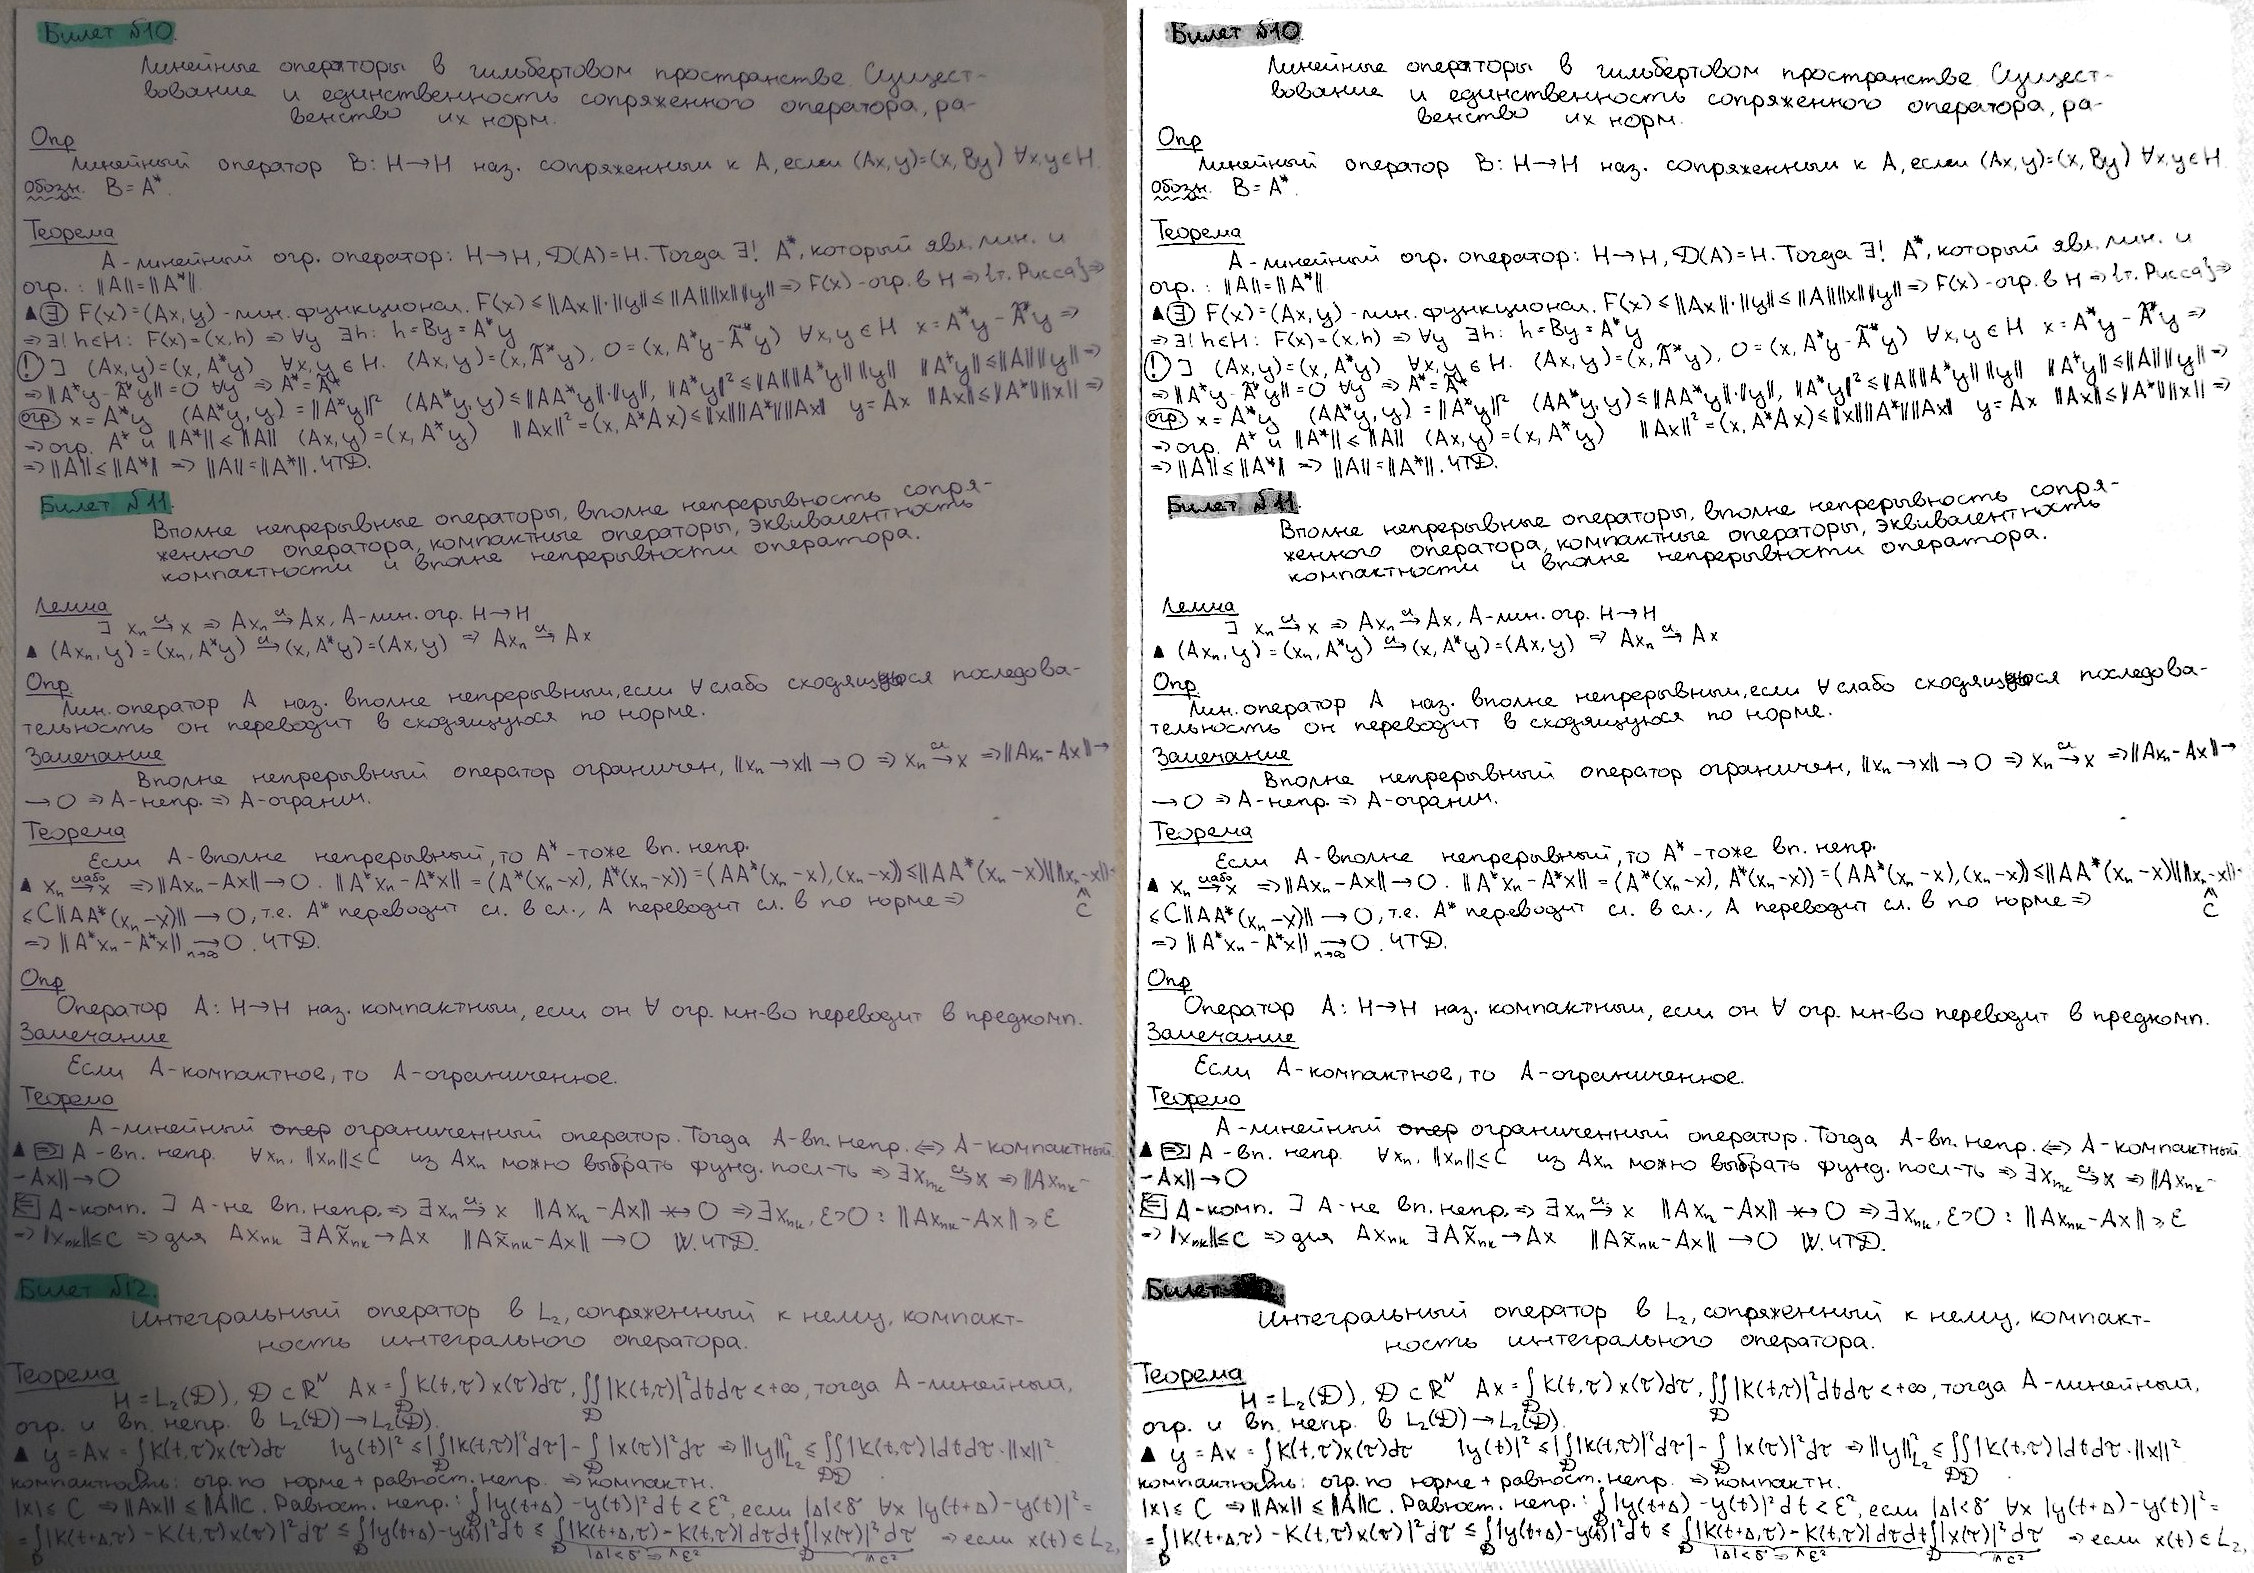 Билет №10.
Линейные операторы в гильбертовом пространстве. Сущест-
вование и единственность сопряженного оператора, ра-
венство их норм.
Опр
Линейный оператор B: H→H наз. сопряженным к A, если (Ax,y)=(x,By) ∀x,y∈H.
Обозн. B=A*.
Теорема
A-линейный огр. оператор: H→H, D(A)=H. Тогда ∃! A*, который явл. лин. и
огр.: ||A||=||A*||.
▲(∃) F(x)=(Ax,y)-лин. функционал. F(x)≤||Ax||·||y||≤||A||||x||||y|| ⇒ F(x)-огр. в H ⇒ {т. Рисса} ⇒
⇒ ∃! h∈H: F(x)=(x,h) ⇒ ∀y ∃h: h=By=A*y
(!) ] (Ax,y)=(x,A*y) ∀x,y∈H. (Ax,y)=(x,Ã*y). 0=(x,A*y-Ã*y) ∀x,y∈H x=A*y-Ã*y ⇒
⇒ ||A*y-Ã*y||=0 ∀y ⇒ A*=Ã*
(огр) x=A*y (AA*y,y)=||A*y||² (AA*y,y)≤||AA*y||·||y||, ||A*y||²≤||A||||A*y||||y|| ||A*y||≤||A||||y|| ⇒
⇒ огр. A* и ||A*||≤||A|| (Ax,y)=(x,A*y) ||Ax||²=(x,A*Ax)≤||x||||A*||||Ax|| y=Ax ||Ax||≤||A*||||x|| ⇒
⇒ ||A||≤||A*|| ⇒ ||A||=||A*||. ЧТД.
Билет №11.
Вполне непрерывные операторы, вполне непрерывность сопря-
женного оператора, компактные операторы, эквивалентность
компактности и вполне непрерывности оператора.
Лемма
] xₙ →сл x ⇒ Axₙ →сл Ax, A-лин. огр. H→H
▲ (Axₙ,y)=(xₙ,A*y) →сл (x,A*y)=(Ax,y) ⇒ Axₙ →сл Ax
Опр
Лин. оператор A наз. вполне непрерывным, если ∀ слабо сходящуюся последова-
тельность он переводит в сходящуюся по норме.
Замечание
Вполне непрерывный оператор ограничен, ||xₙ→x||→0 ⇒ xₙ →сл x ⇒ ||Axₙ-Ax||→
→0 ⇒ A-непр. ⇒ A-огранич.
Теорема
Если A-вполне непрерывный, то A*-тоже вп. непр.
▲ xₙ →слабо x ⇒ ||Axₙ-Ax||→0. ||A*xₙ-A*x||=(A*(xₙ-x), A*(xₙ-x))=(AA*(xₙ-x),(xₙ-x))≤||AA*(xₙ-x)||||xₙ-x||≤
≤C||AA*(xₙ-x)||→0, т.е. A* переводит сл. в сл., A переводит сл. в по норме ⇒ ^C
⇒ ||A*xₙ-A*x|| →n→∞ 0. ЧТД.
Опр
Оператор A: H→H наз. компактным, если он ∀ огр. мн-во переводит в предкомп.
Замечание
Если A-компактное, то A-ограниченное.
Теорема
A-линейный опер ограниченный оператор. Тогда A-вп. непр. ⇔ A-компактный.
▲[⇒] A-вп. непр. ∀xₙ, ||xₙ||≤C из Axₙ можно выбрать фунд. посл-ть ⇒ ∃xₙₖ →сл x ⇒ ||Axₙₖ-
-Ax||→0
[⇐] A-комп. ] A-не вп. непр. ⇒ ∃xₙ →сл x ||Axₙ-Ax||↛0 ⇒ ∃xₙₖ, ε>0: ||Axₙₖ-Ax||≥ε
⇒ ||xₙₖ||≤C ⇒ для Axₙₖ ∃Ax̃ₙₖ→Ax ||Ax̃ₙₖ-Ax||→0 W. ЧТД.
Билет №12.
Интегральный оператор в L₂, сопряженный к нему, компакт-
ность интегрального оператора.
Теорема
H=L₂(D), D⊂Rᴺ Ax=∫_D K(t,τ)x(τ)dτ, ∫∫_D |K(t,τ)|²dtdτ<+∞, тогда A-линейный,
огр. и вп. непр. в L₂(D)→L₂(D).
▲ y=Ax=∫_D K(t,τ)x(τ)dτ |y(t)|²≤|∫_D|K(t,τ)|²dτ|-∫_D|x(τ)|²dτ ⇒ ||y||²_L₂ ≤ ∫∫_DD |K(t,τ)|dtdτ·||x||²
компактность: огр. по норме + равност. непр. ⇒ компактн.
|x|≤C ⇒ ||Ax||≤||A||C. Равност. непр.: ∫_D|y(t+Δ)-y(t)|²dt<ε², если |Δ|<δ ∀x |y(t+Δ)-y(t)|²=
=∫_D|K(t+Δ,τ)-K(t,τ)x(τ)|²dτ ≤ ∫_D|y(t+Δ)-y(t)|²dt ≤ ∫_D|K(t+Δ,τ)-K(t,τ)|dτdt∫_D|x(τ)|²dτ ⇒ если x(t)∈L₂,
|Δ|<δ ⇒ ^ε² ^C²